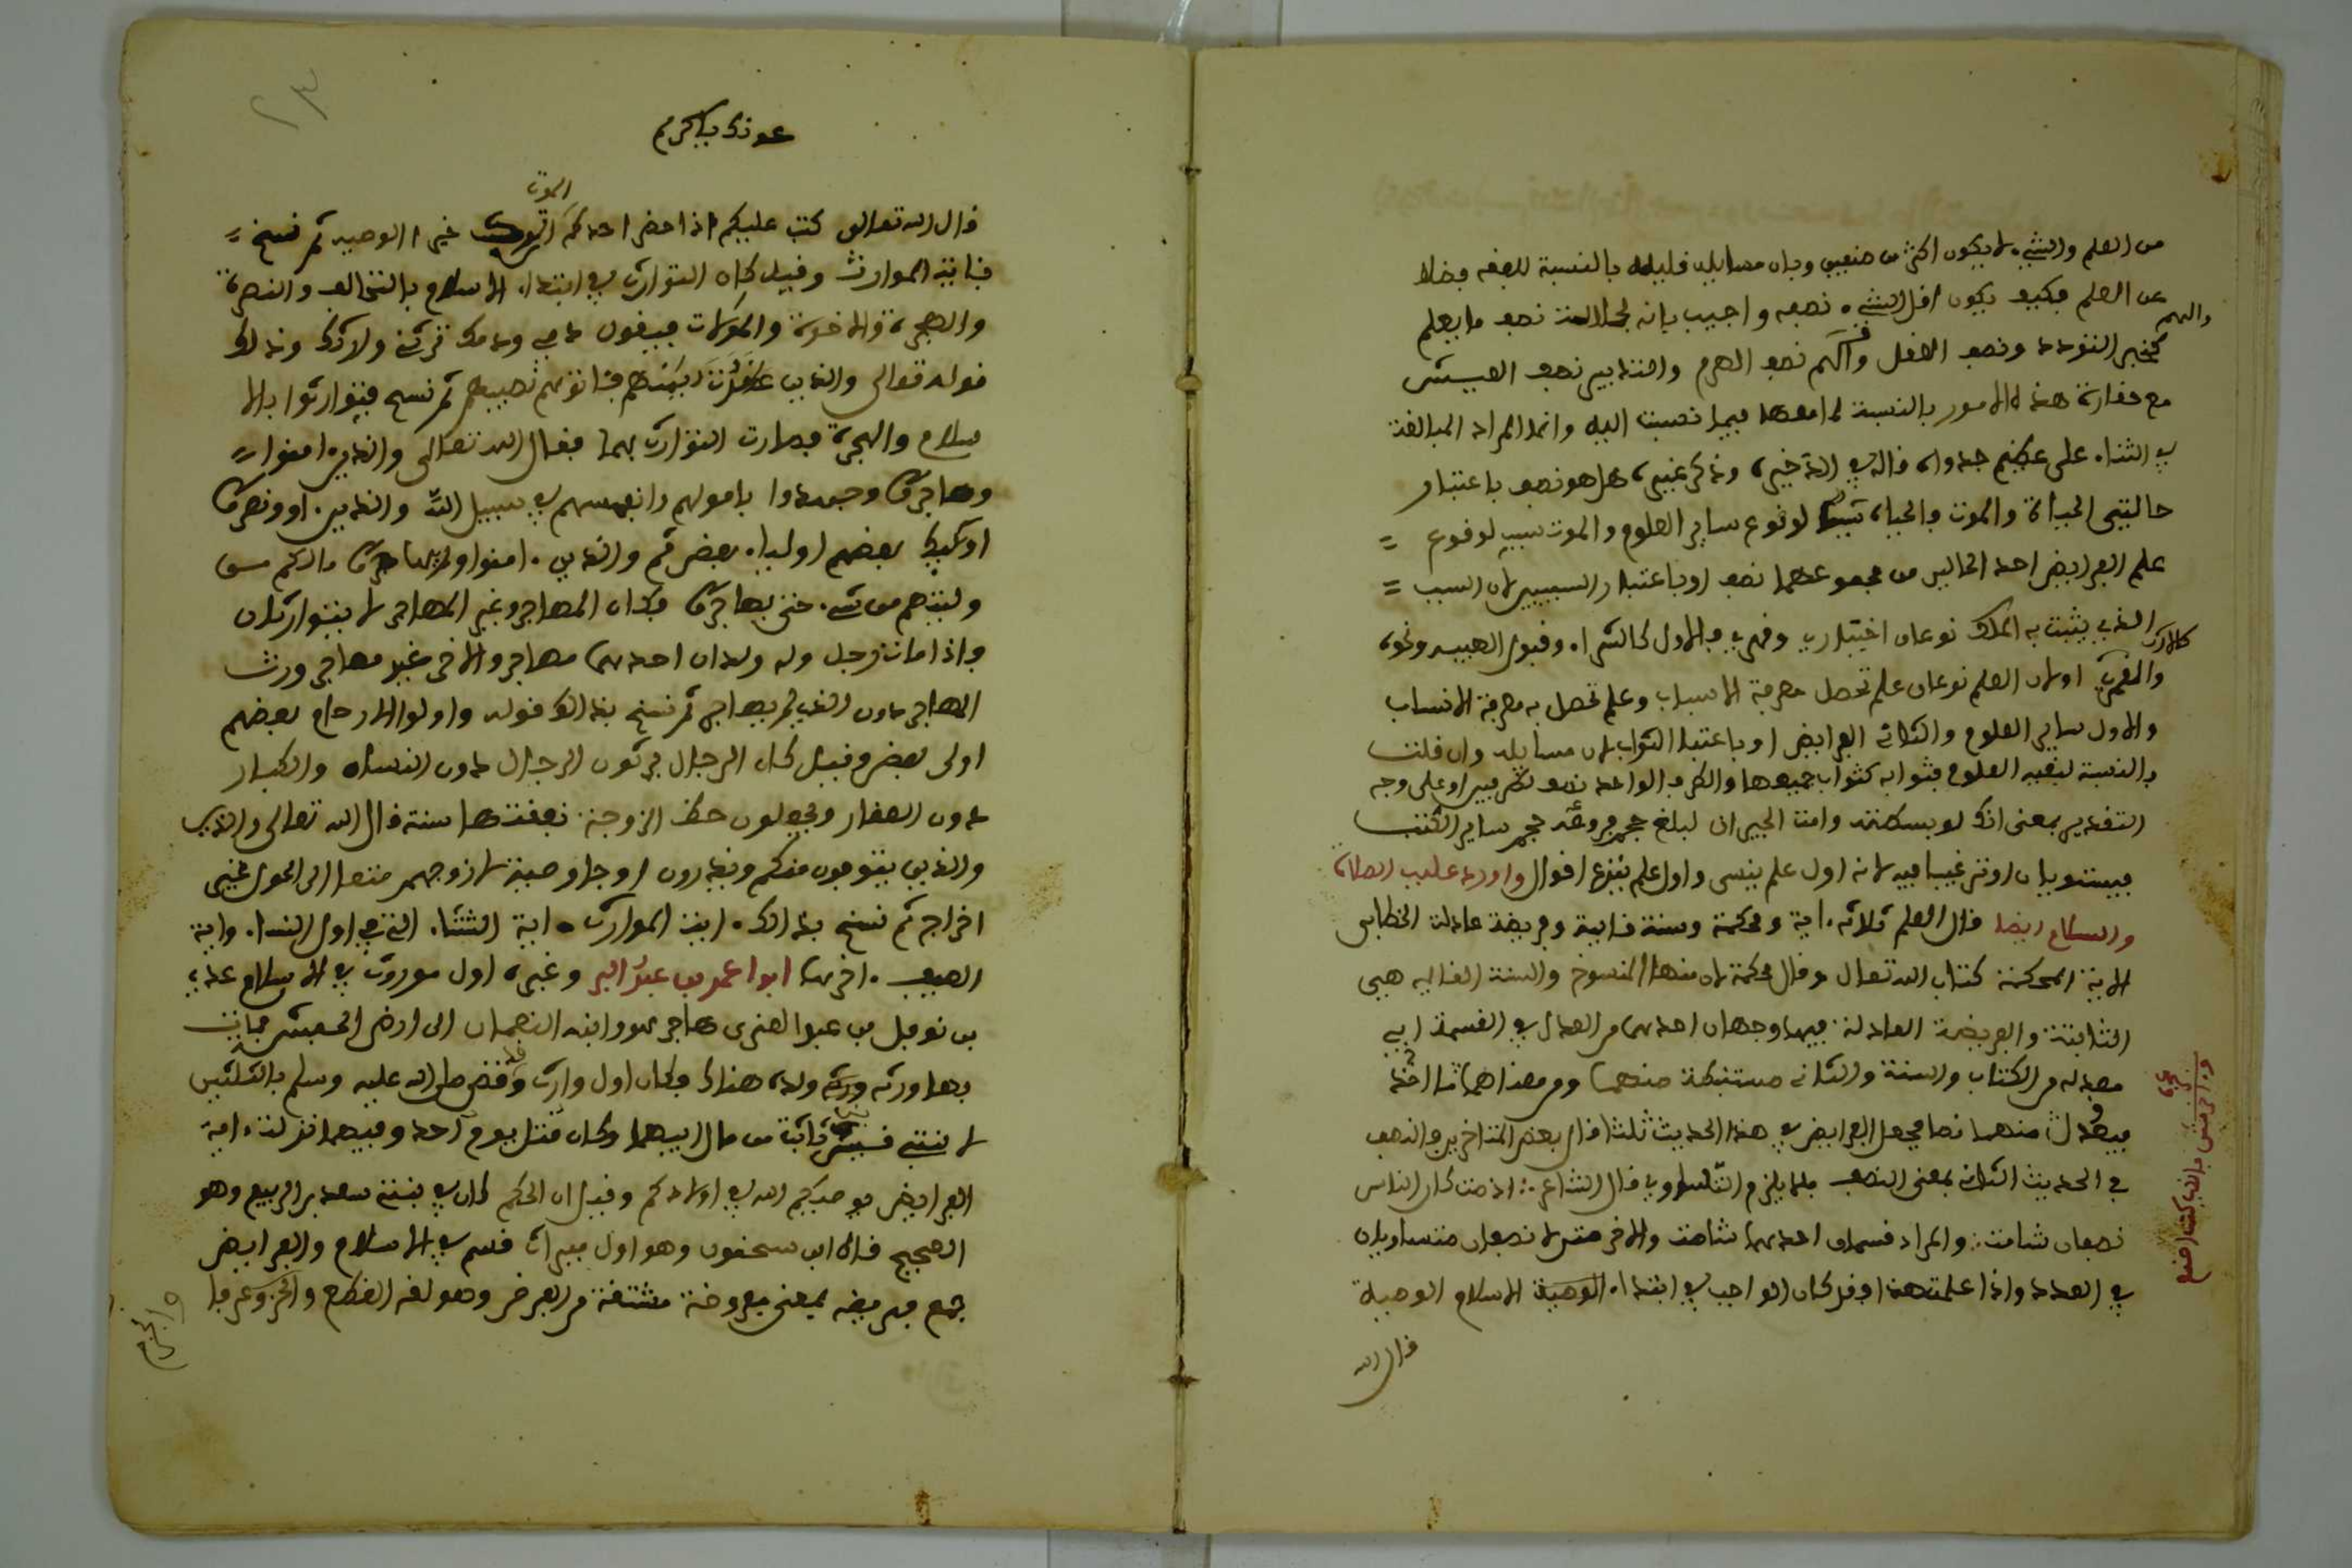 من العلم والشيء لا يكون اكثر من ضعيين وبان مسايله فليله بالنسبة للعفه وضلا
عن العلم وكيف يكون افل الشيء نصعه واجيب بانه نصف ما يعلم
والهم
كخبر التودد ونصف العفل نصف الهرم والتدبير نصف العيش
مع حفارة هذه الامور بالنسبة لما معها فيما نصبت اليه وانما المراد المبالغة
في الثناء على عظيم جدواه فاله في الذخيره وذكر غيره هل هو نصف باعتبار
حالتي الحياة والموت والحياه سبب لوفوع ساير العلوم والموت سبب لوفوع =
علم الفرايض احد الحالين من مجموعهما نصف او باعتبار السببين لان السبب =
الذي يثبت به الملك نوعان اختياري وفهري والاول كالشراء وفبول الهبه ونحوه
كالارث
والفهري اولان العلم نوعان علم تحصل معرفة الاسباب وعلم تحصل به معرفة الانساب
والاول ساير العلوم والثاني الفرايض او باعتبار الثواب لان مسايله وان فلت
بالنسبة لبفيه العلوم فثوابه كثواب جميعها والكل والواحد نصف او على وجه
التفدير بمعنى انك لو بسطته وامت الجبران لبلغ حجم فروعه حجم ساير الكتب
فيستويان او ترغيبا فيه لانه اول علم ينسى واول علم ينزع افوال واورد عليه الصلاة
والسلام ايضا فال العلم ثلاثه اية ومحكمة وسنة فايمة وفريضة عادلة الخطابي
الاية المحكمة كتاب الله تعال وفال محكمة لان منها المنسوخ والسنة الفايمه هي
الثابتة والفريضة العادلة فيها وجهان احدهما من العدل في الفسمة اي
معدله من الكتاب والسنة والثاني مستنبطة منهما ومن معناهما ما اخذ
فيعدل منهما نصا فجعل الفرايض في هذا الحديث ثلثا فال بعض المتاخرين والنصف
في الحديث الثاني بمعنى الصنف فلا يلزم التساوي فال الشاعر : اذا مت كان الناس
نصفان شامت : والمراد فسمان احدهما شامت والاخر مثن لا نصفان متساويان
في العدد واذا علمت هذا ففد كان الواجب في ابتداء الوصية الاسلام الوصية
فال الله
واخر مثن بالذي كنت اصنع
عونك ياكريم
٢٣
الموت
فال الله تعالى كتب عليكم اذا حضر احدكم ان ترك خيرا الوصيه ثم نسخ =
باية الموارث وفيل كان التوارث في ابتداء الاسلام بالتحالف والنصرة
والهجرة والاخوة والموالات فيفول دمي ودمك ترثني ولارثك وذالك
فوله تعالى والذين عافدت ايمنكم فئاتوهم نصيبهم ثم نسخ فتوارثوا بالا
سلام والهجرة فصارت التوارث بهما ففال الله تعالى والذين امنوا =
وهاجروا وجهدوا باموالهم وانفسهم في سبيل الله والذين اوو ونصروا
اوليك بعضهم اولياء بعض ثم والذين امنوا ولم يهاجروا مالكم من
ولايتهم من شيء حتى يهاجروا فكان المهاجر وغير المهاجر لا يتوارثان
واذا مات رجل وله ولدان احدهما مهاجر والاخر غير مهاجر ورث
المهاجر دون الذي لم يهاجر ثم نسخ بذالك فوله واولوا الارحام بعضهم
اولى ببعض وفيل كان الرجال يرثون الرجال دون النساء والكبار
دون الصغار ويجعلون حظ الزوجة نففتها سنة فال الله تعالى والذين
والذين يتوفون منكم ويذرون ازوجا وصية لازوجهم متعا الى الحول غير
اخراج ثم نسخ بذالك اية الموارث اية الشتاء التي في اول النساء واية
الصيف اخرها ابوا عمر بن عبد البر وغيره اول موروث في الاسلام عدي
بن نوفل بن عبد العزى هاجر هو وابنه النعمان الى ارض الحبشة فمات
بها ورثه ولده هنالك فكان اول وارث وفضى صلى الله عليه وسلم بالثلثين
لابنتي ثابت من مال ابيهما وكان فتل يوم احد وفيهما نزلت اية
الفرايض يوصيكم الله في اولادكم وفيل ان الحكم كان في بنتي سعد بن الربيع وهو
الصحيح فاله ابن سحنون وهو اول ميراث فسم في الاسلام والفرايض
جمع فريضه بمعنى مفروضة مشتفة من الفرض وهو لغة الفطع والحز وعرفا